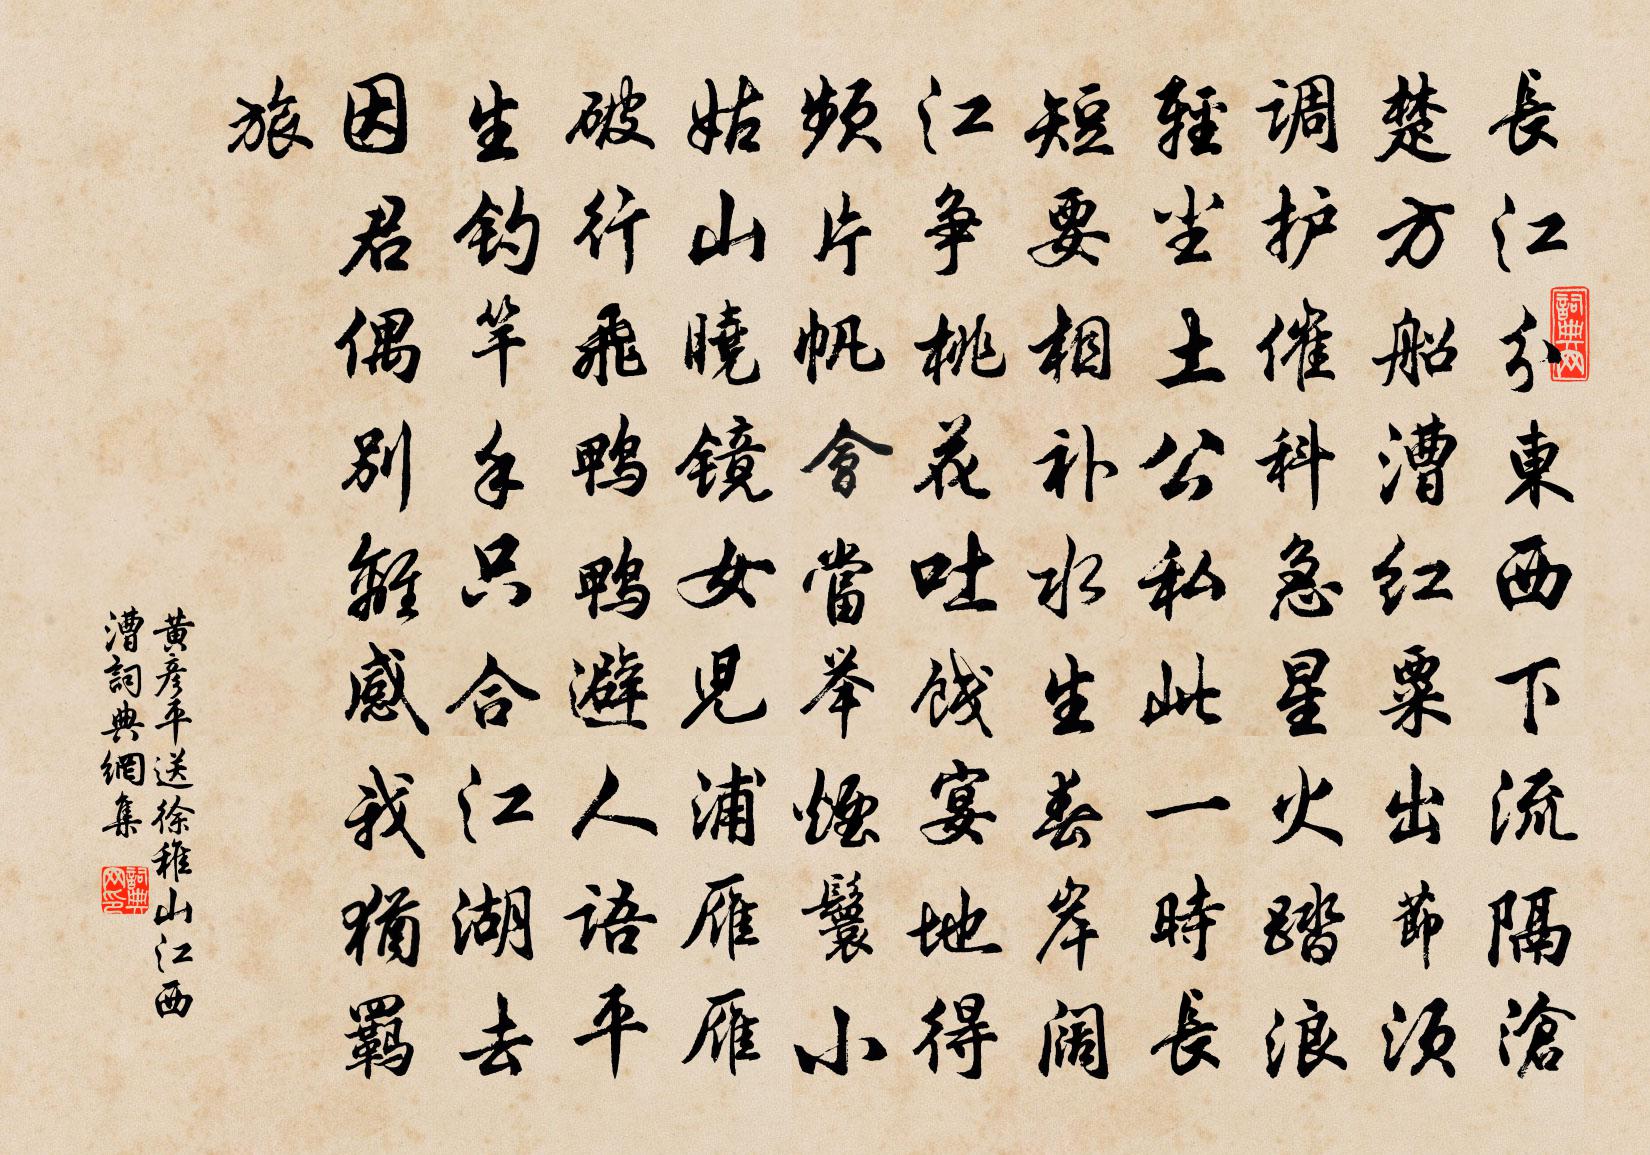 長江分東西下流隔滄
楚方船漕红粟出節须
调护催科急星火踏浪
輕尘土公私此一時長
短要相补水生春岸阔
江争桃花吐餞宴地得
频片帆會當举煙鬟小
姑山曉镜女児浦雁雁
破行飛鸭鸭避人语平
生钓竿手只合江湖去
因君偶别離感我猶羁
旅
黄彦平送徐稚山江西
漕詞典網集
詞典网
詞典网印